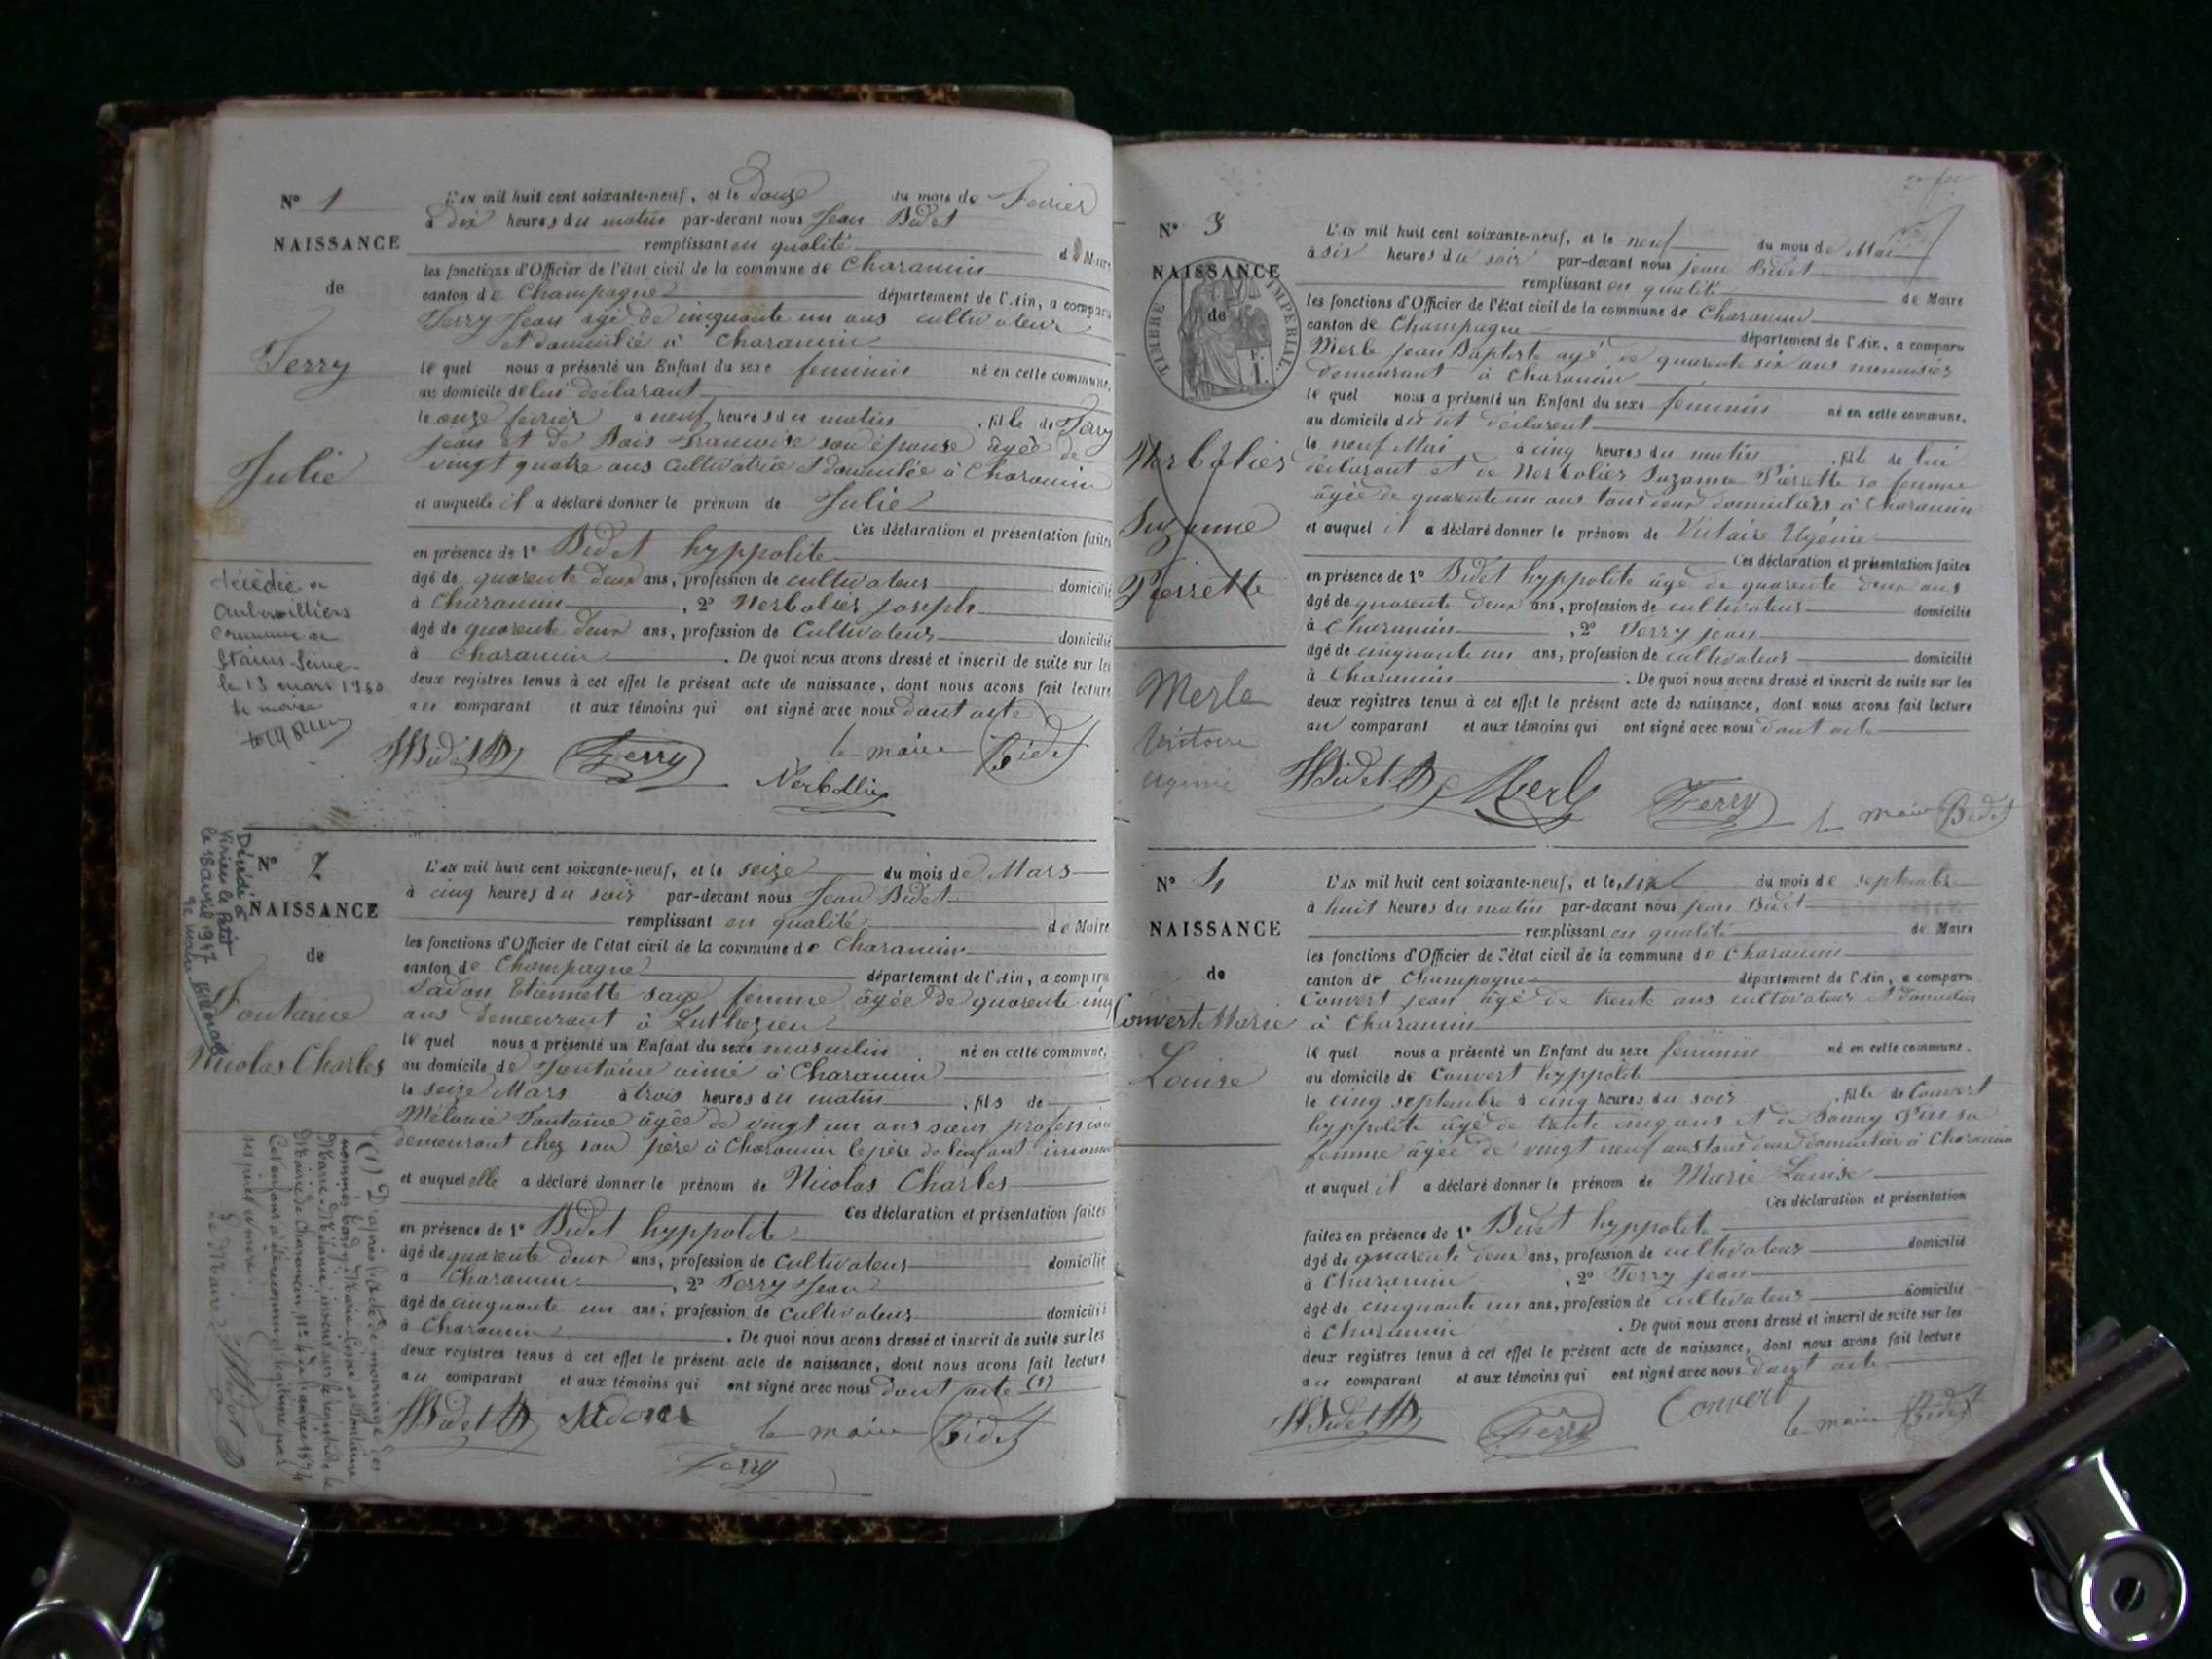 N° 1
NAISSANCE
de
Ferry
Julie
L'AN mil huit cent soixante-neuf, et le douze du mois de Fevrier
à dix heures du matin par-devant nous Jean Bidet
remplissant en qualité de Maire
les fonctions d'Officier de l'état civil de la commune de Charancin
canton de Champagne département de l'Ain, a comparu
Ferry Jean agé de cinquante un ans cultivateur
et domicilié à Charancin
le quel nous a présenté un Enfant du sexe feminin né en cette commune,
au domicile de lui déclarant
le onze fevrier a neuf heures du matin , fille de Ferry
jean et de Bois Francoise son épouse âgée de
vingt quatre ans cultivatrice et domiciliée à Charancin
et auquelle il a déclaré donner le prénom de Julie
Ces déclaration et présentation faites
en présence de 1° Bidet hyppolite
âgé de quarente deux ans, profession de cultivateur domicilié
à Charancin , 2° Nerbolier joseph
âgé de quarente deux ans, profession de Cultivateur domicilié
à Charancin . De quoi nous avons dressé et inscrit de suite sur les
deux registres tenus à cet effet le présent acte de naissance, dont nous avons fait lecture
au comparant et aux témoins qui ont signé avec nous dont acte
HBidet Ferry le maire Bidet
Nerbollier
décédée a
Aubervilliers
commune de
Stains-Seine
le 13 mars 1960
le maire
N° 2
NAISSANCE
de
Fontaine
Nicolas Charles
Décédé à
Virieu le Petit
le 18 avril 1947
Le Maire
L'AN mil huit cent soixante-neuf, et le seize du mois de Mars
à cinq heures du soir par-devant nous Jean Bidet
remplissant en qualité de Maire
les fonctions d'Officier de l'état civil de la commune de Charancin
canton de Champagne département de l'Ain, a comparu
Sadon Etiennette sage femme âgée de quarente cinq
ans demeurant à Luthezieu
le quel nous a présenté un Enfant du sexe masculin né en cette commune,
au domicile de Fontaine aimé à Charancin
le seize Mars à trois heures du matin , fils de
Mélanie Fontaine âgée de vingt un ans sans profession
demeurant chez son père à Charancin le père de l'enfant inconnu
et auquel elle a déclaré donner le prénom de Nicolas Charles
Ces déclaration et présentation faites
en présence de 1° Bidet hyppolite
âgé de quarente deux ans, profession de cultivateur domicilié
à Charancin , 2° Ferry Jean
âgé de cinquante un ans, profession de cultivateur domicilié
à Charancin . De quoi nous avons dressé et inscrit de suite sur les
deux registres tenus à cet effet le présent acte de naissance, dont nous avons fait lecture
au comparant et aux témoins qui ont signé avec nous dont acte (1)
HBidet Sadon le maire Bidet
Ferry
(1) D'après l'acte de mariage des
nommés Marie-César et Fontaine
Marie-Mélanie, inscrit sur le registre de la
Mairie de Charancin, n° 4 de l'année 1874
Cet enfant a été reconnu et légitimé par
ses père et mère.
Le Maire HBidet
N° 3
NAISSANCE
de
TIMBRE IMPÉRIAL
Nerbolier
Suzanne
Pierrette
Merle
Victoire
Ugénie
L'AN mil huit cent soixante-neuf, et le neuf du mois de Mai
à six heures du soir par-devant nous jean Bidet
remplissant en qualité de Maire
les fonctions d'Officier de l'état civil de la commune de Charancin
canton de Champagne département de l'Ain, a comparu
Merle Jean Baptiste agé de quarente six ans menuisier
demeurant à Charancin
le quel nous a présenté un Enfant du sexe feminin né en cette commune.
au domicile du dit déclarent
le neuf Mai à cinq heures du matin , fille de lui
déclarant et de Nerbolier Suzanne Pierrette sa femme
âgée de quarente un ans tous deux domiciliers à Charancin
et auquel il a déclaré donner le prénom de Victoire Ugénie
Ces déclaration et présentation faites
en présence de 1° Bidet hyppolite âgé de quarente deux ans
âgé de quarente deux ans, profession de cultivateur domicilié
à Charancin , 2° Ferry jean
âgé de cinquante un ans, profession de cultivateur domicilié
à Charancin . De quoi nous avons dressé et inscrit de suite sur les
deux registres tenus à cet effet le présent acte de naissance, dont nous avons fait lecture
au comparant et aux témoins qui ont signé avec nous dont acte
HBidet Merle Ferry le maire Bidet
N° 4
NAISSANCE
de
Convert Marie
Louise
L'AN mil huit cent soixante-neuf, et le six du mois de septembre
à huit heures du matin par-devant nous jean Bidet
remplissant en qualité de Maire
les fonctions d'Officier de l'état civil de la commune de Charancin
canton de Champagne département de l'Ain, a comparu
Convert jean âgé de trente ans cultivateur et domicilié
à Charancin
le quel nous a présenté un Enfant du sexe feminin né en cette commune.
au domicile de Convert hyppolite
le cinq septembre à cinq heures du soir , fille de Convert
hyppolite âgé de trente cinq ans et de Bonny sa
femme âgée de vingt neuf ans tous deux domiciliés à Charancin
et auquel il a déclaré donner le prénom de Marie Louise
Ces déclaration et présentation
faites en présence de 1° Bidet hyppolite
âgé de quarente deux ans, profession de cultivateur domicilié
à Charancin , 2° Ferry jean
âgé de cinquante un ans, profession de cultivateur domicilié
à Charancin . De quoi nous avons dressé et inscrit de suite sur les
deux registres tenus à cet effet le présent acte de naissance, dont nous avons fait lecture
au comparant et aux témoins qui ont signé avec nous dont acte
HBidet Ferry Convert le maire Bidet